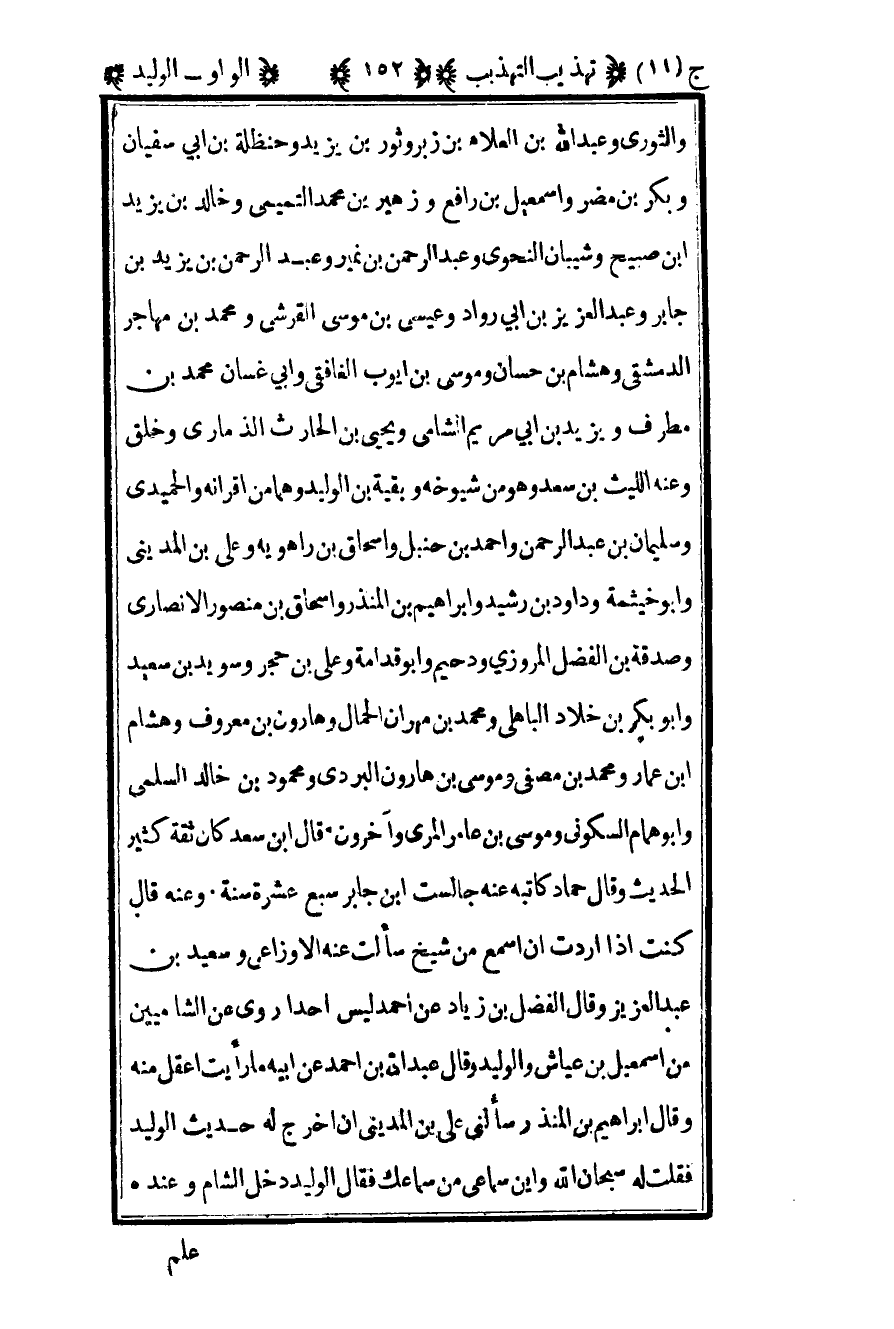 ج (١١) تهذيب التهذيب ١٥٢ الواو ـ الوليد
والثورى وعبدالله بن العلاء بن زبر وثور بن يزيد وحنظلة بن ابي سفيان
وبكر بن مضر واسمعيل بن رافع وزهير بن محمد التميمى وخالد بن يزيد
ابن صبيح وشيبان النحوى وعبدالرحمن بن نمير وعبد الرحمن بن يزيد بن
جابر وعبدالعزيز بن ابي رواد وعيسى بن موسى القرشى و محمد بن مهاجر
الدمشقى وهشام بن حسان وموسى بن ايوب الغافقى وابي غسان محمد بن
مطرف ويزيد بن ابي مريم الشامى ويحيى بن الحارث الذمارى وخلق
وعنه الليث بن سعد وهو من شيوخه وبقية بن الوليد وهما من اقرانه والحميدى
وسليمان بن عبدالرحمن واحمد بن حنبل واسحاق بن راهويه وعلى بن المدينى
وابو خيثمة وداود بن رشيد وابراهيم بن المنذر واسحاق بن منصور الانصارى
وصدقة بن الفضل المروزي ودحيم وابو قدامة وعلى بن حجر وسويد بن سعيد
وابو بكر بن خلاد الباهلى ومحمد بن مهران الجمال وهارون بن معروف وهشام
ابن عمار ومحمد بن مصفى وموسى بن هارون البردى ومحمود بن خالد السلمى
وابوهمام السكونى وموسى بن عامر المرى وآخرون · قال ابن سعد كان ثقة كثير
الحديث وقال حماد كاتبه عنه جالست ابن جابر سبع عشرة سنة · وعنه قال
كنت اذا اردت ان اسمع من شيخ سألت عنه الاوزاعى وسعيد بن
عبدالعزيز وقال الفضل بن زياد عن احمد ليس احدا روى عن الشاميين
من اسمعيل بن عياش والوليد وقال عبدالله بن احمد عن ابيه ما رأيت اعقل منه
وقال ابراهيم بن المنذر سألنى على بن المدينى ان اخرج له حديث الوليد
فقلت له سبحان الله واين سماعى من سماعك فقال الوليد دخل الشام وعنده
علم